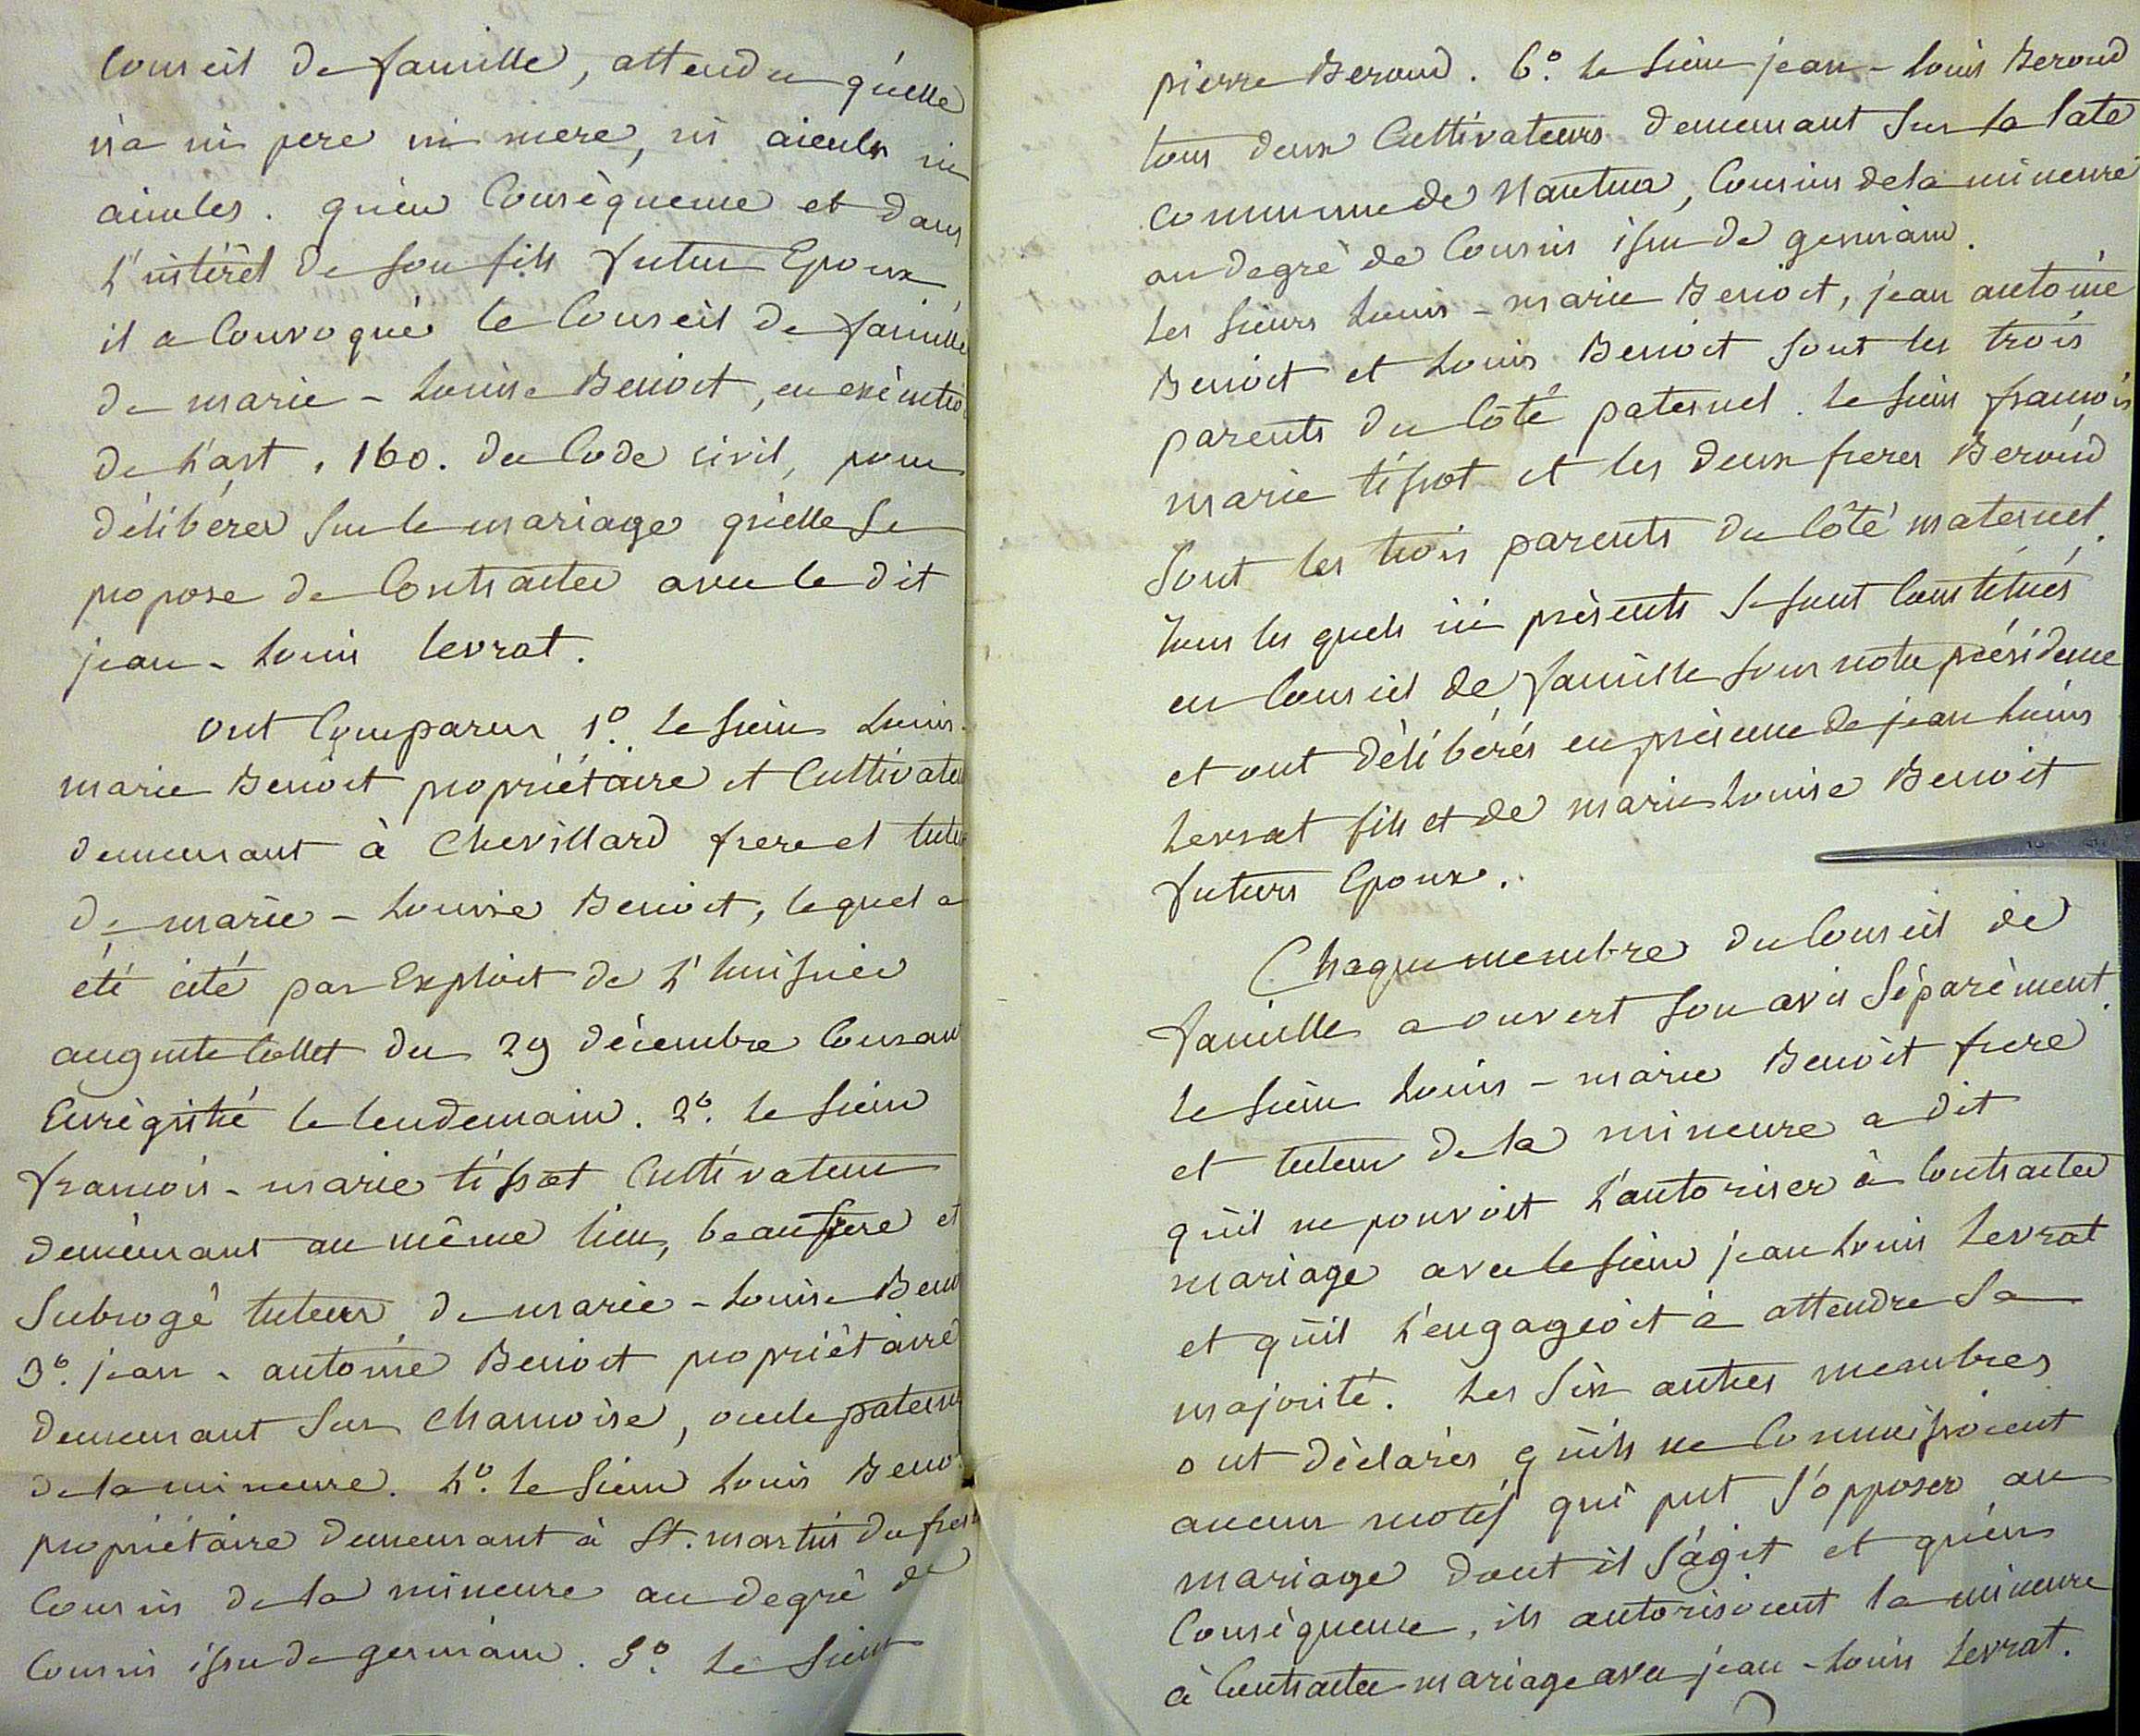 Conseil de famille, attendu qu'elle
n'a ni pere ni mere, ni aieuls ni
aieules. qu'en Conséquence et dans
L'intérêt de son fils futur Epoux
il a Convoqué le Conseil de famille
de marie - Louise Benoit, en exécution
de L'art. 160. du Code civil, pour
délibérer sur le mariage qu'elle se
propose de Contracter avec le dit
jean - Louis Levrat.
ont Comparus 1.° le sieur Louis-
marie Benoit propriétaire et Cultivateu
demeurant à Chevillard frere et tuteu
de marie - Louise Benoit, lequel a
été cité par Exploit de L'huissier
auguste Collet du 29 décembre Courant
Enrégistré le lendemain. 2.° le sieur
françois - marie tissot Cultivateur
demeurant au même lieu, beaufrere et
subrogé tuteur de marie - Louise Beno
3.° jean - antoine Benoit propriétaire
demeurant sur Chamoise, oncle patern
de la mineure. 4.° le sieur Louis Beno
propriétaire demeurant à St. martin du fres
Cousin de la mineure au degré de
Cousin issu de germain. 5.° Le sieur
pierre Beroud. 6.° le sieur jean - Louis Beroud
tous deux Cultivateurs demeurant sur la Late
Commune de Nantua, Cousins de la mineure
au degré de Cousin issu de germain.
Les sieurs Louis - marie Benoit, jean antoine
Benoit et Louis Benoit sont les trois
parents du Côté paternel. le sieur françois
marie tissot et les deux freres Beroud
sont les trois parents du Côté maternel.
Tous les quels ici présents se sont Constitués
en Conseil de famille sous notre présidence
et ont délibérés en présence de jean Louis
Levrat fils et de marie Louise Benoit
futurs Epoux.
Chaque membre du Conseil de
famille a ouvert son avis séparément.
le sieur Louis - marie Benoit frere
et tuteur de la mineure a dit
qu'il ne pouvoit L'autoriser à Contracter
mariage avec le sieur jean Louis Levrat
et qu'il L'engageoit à attendre sa
majorité. Les six autres membres
ont déclarés qu'ils ne Connoissoient
aucun motif qui put s'opposer au
mariage dont il s'agit et qu'en
Conséquence, ils autorisoient la mineure
à Contracter mariage avec jean - Louis Levrat.